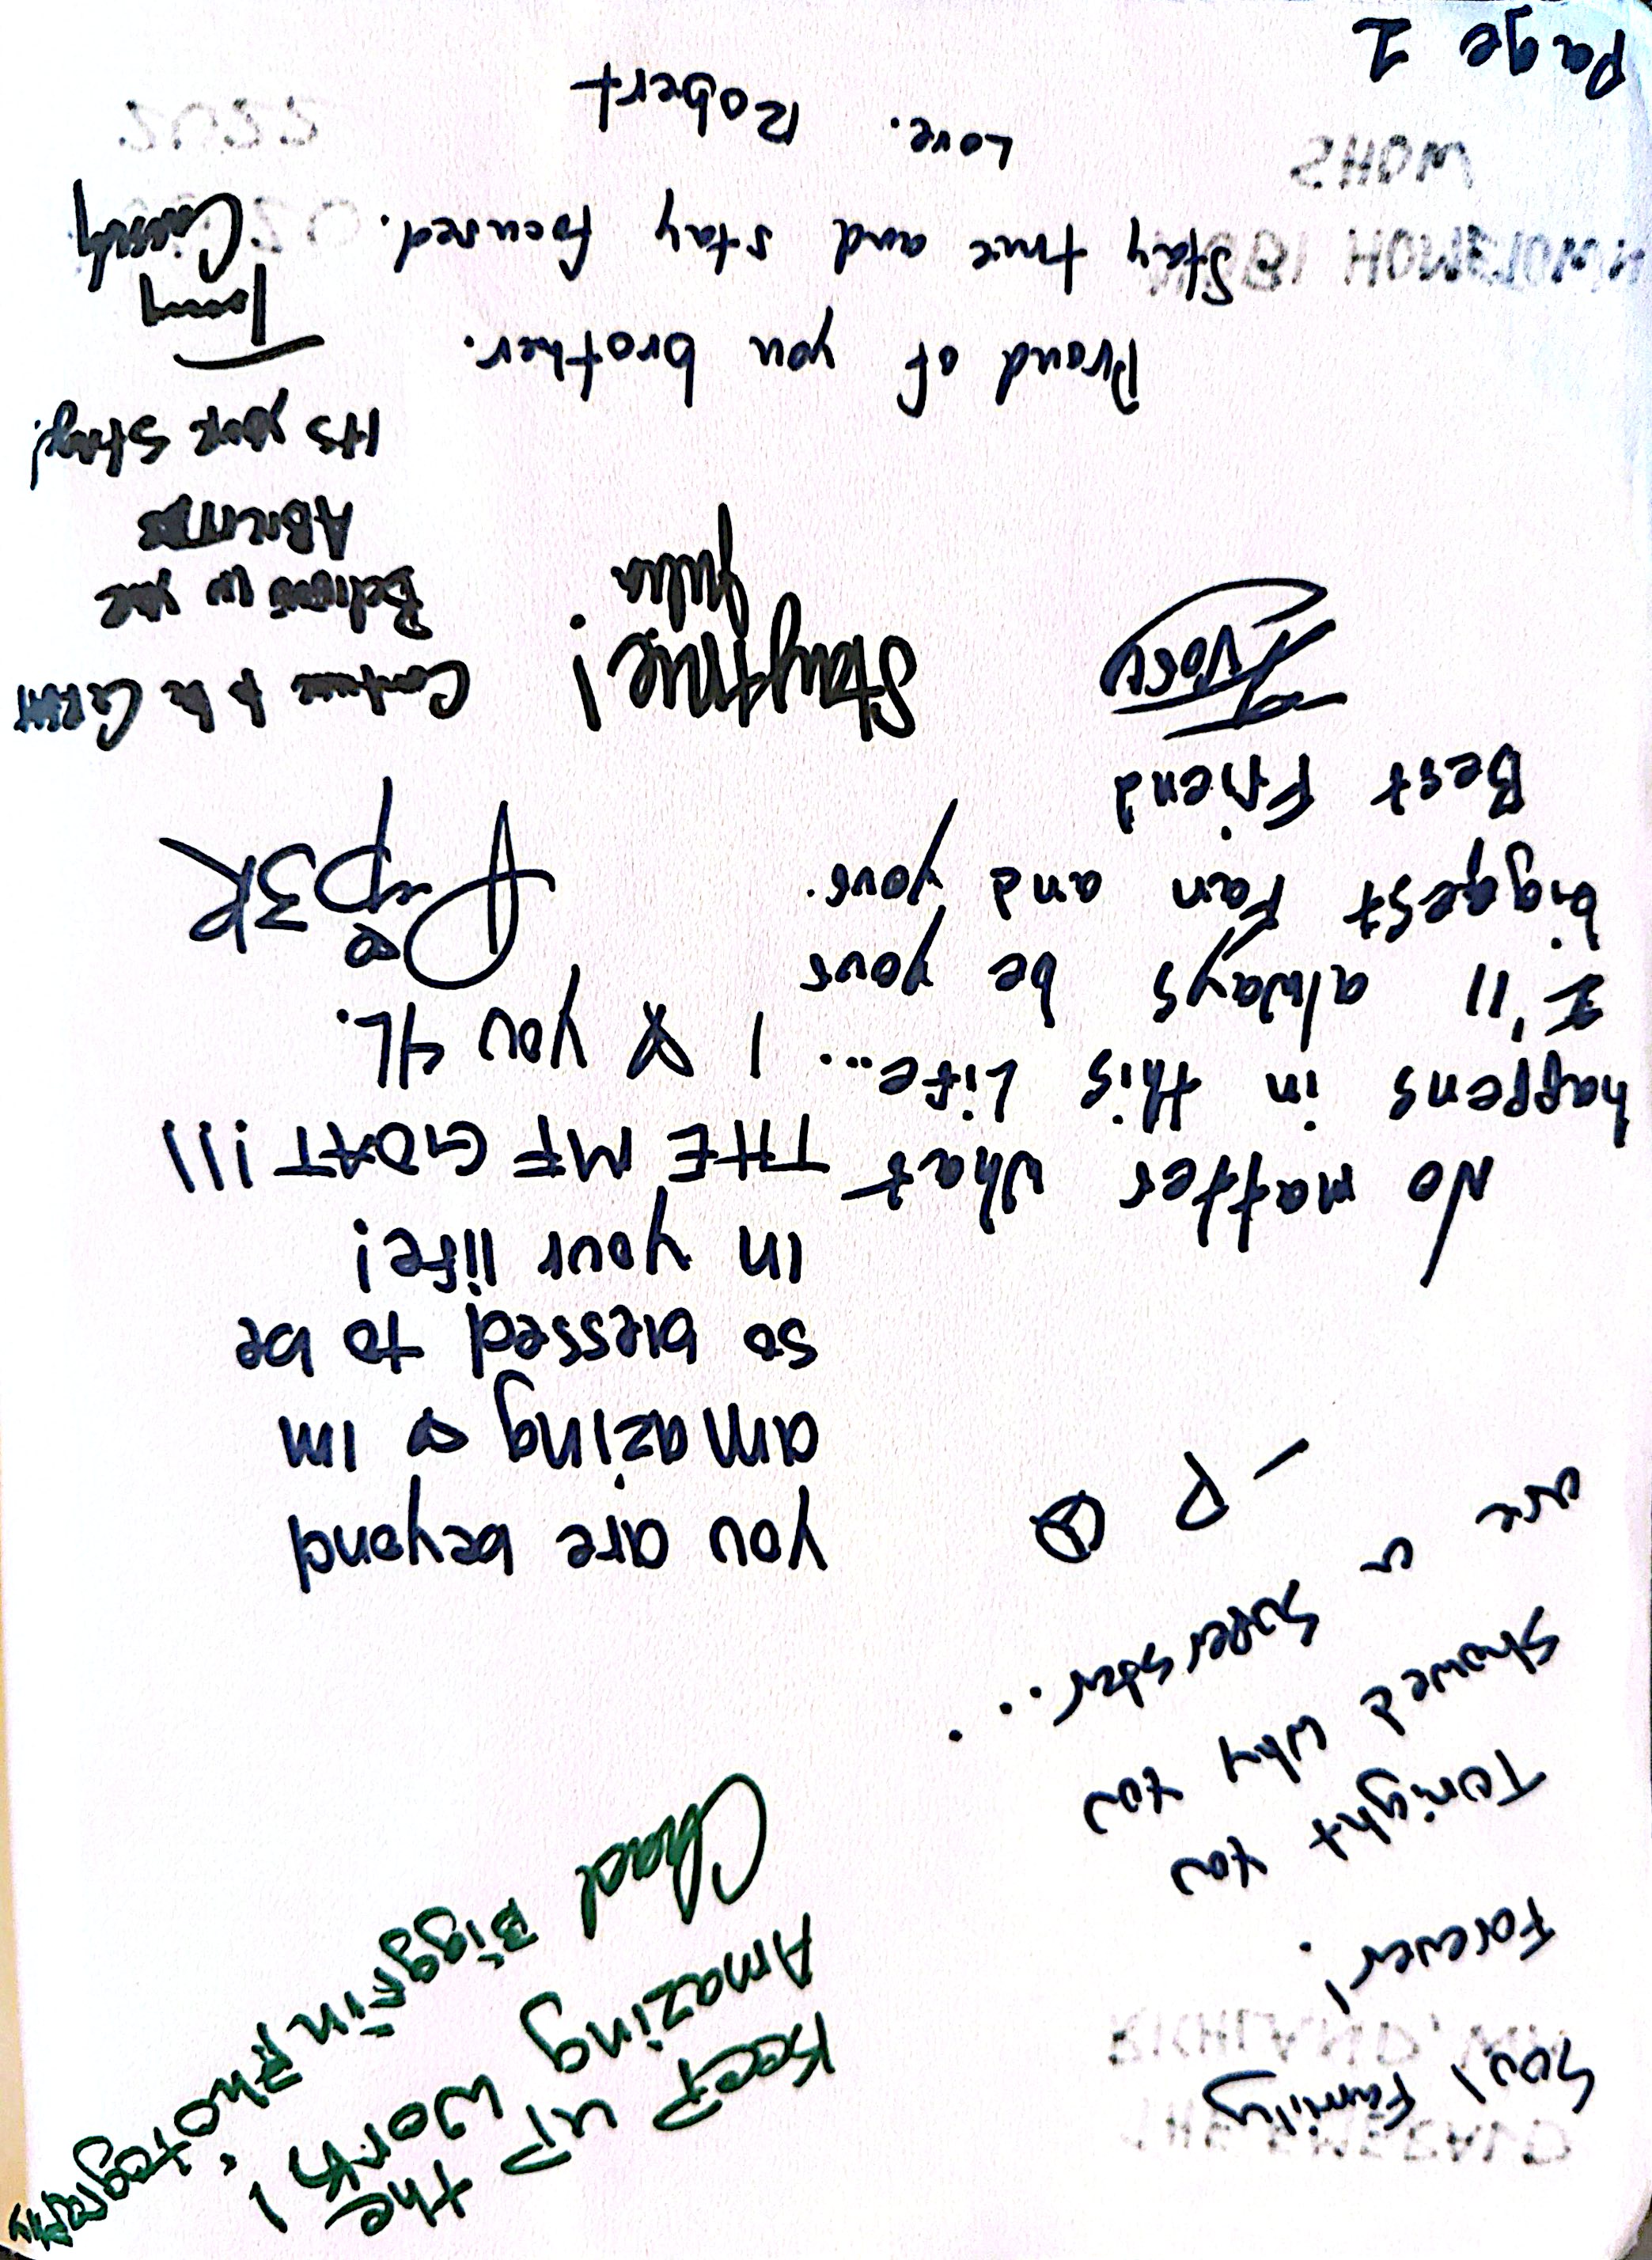 Keep up the
Amazing work!
Chad Biggrin Photography
Soul Family
Forever!
Tonight you
showed why you
are a superstar...
- P
you are beyond
amazing & Im
so blessed to be
in your life!
THE MF GOAT!!!
I & you 4L.
No matter what
happens in this Life...
I'll always be your
biggest Fan and your
Best Friend
Stay true!
Julia
Continue to be Great
Believe in your
ABILITIES
Its your Stage!
Tommy
Cassidy
Proud of you brother.
Stay true and stay focused.
Love. Robert
Page 1